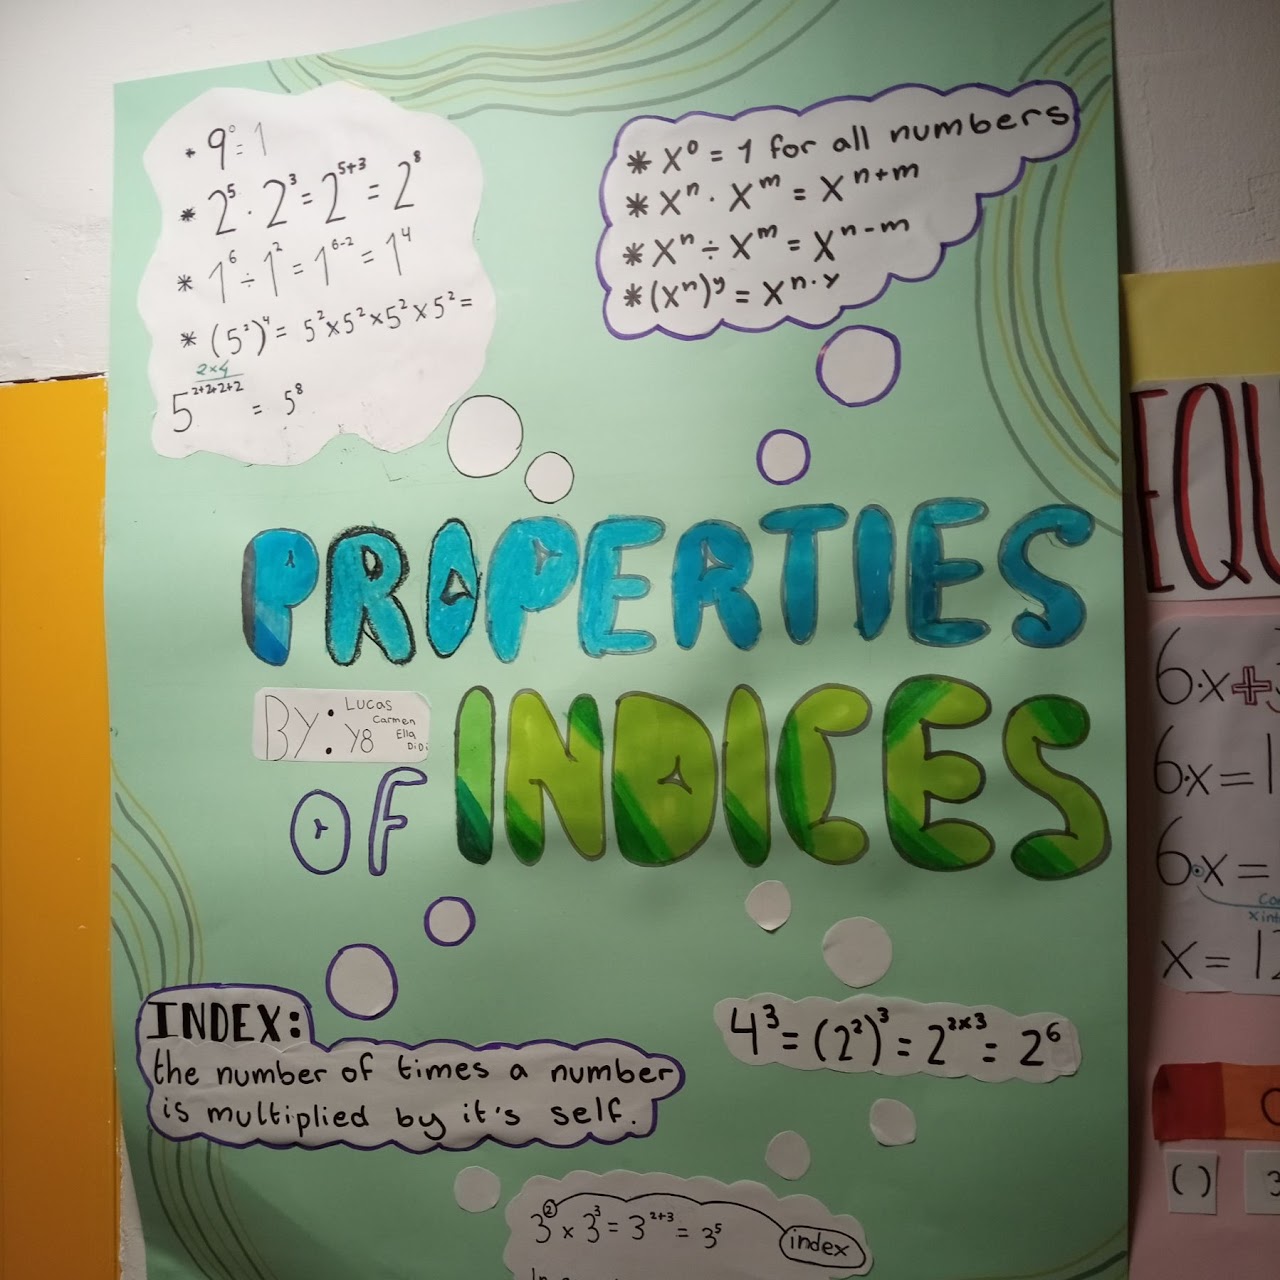 * 9⁰ = 1
* 2⁵ · 2³ = 2⁵⁺³ = 2⁸
* 1⁶ ÷ 1² = 1⁶⁻² = 1⁴
* (5²)⁴ = 5² x 5² x 5² x 5² =
2x4
5²⁺²⁺²⁺² = 5⁸
* X⁰ = 1 for all numbers
* Xⁿ · Xᵐ = Xⁿ⁺ᵐ
* Xⁿ ÷ Xᵐ = Xⁿ⁻ᵐ
* (Xⁿ)ʸ = Xⁿ·ʸ
PROPERTIES
OF INDICES
BY: Lucas
Carmen
Ella
DiDi
Y8
INDEX:
the number of times a number
is multiplied by it's self.
4³ = (2²)³ = 2²ˣ³ = 2⁶
3² x 3³ = 3²⁺³ = 3⁵
index
EQU
6·x+
6·x = 1
6·x =
x = 12
( )